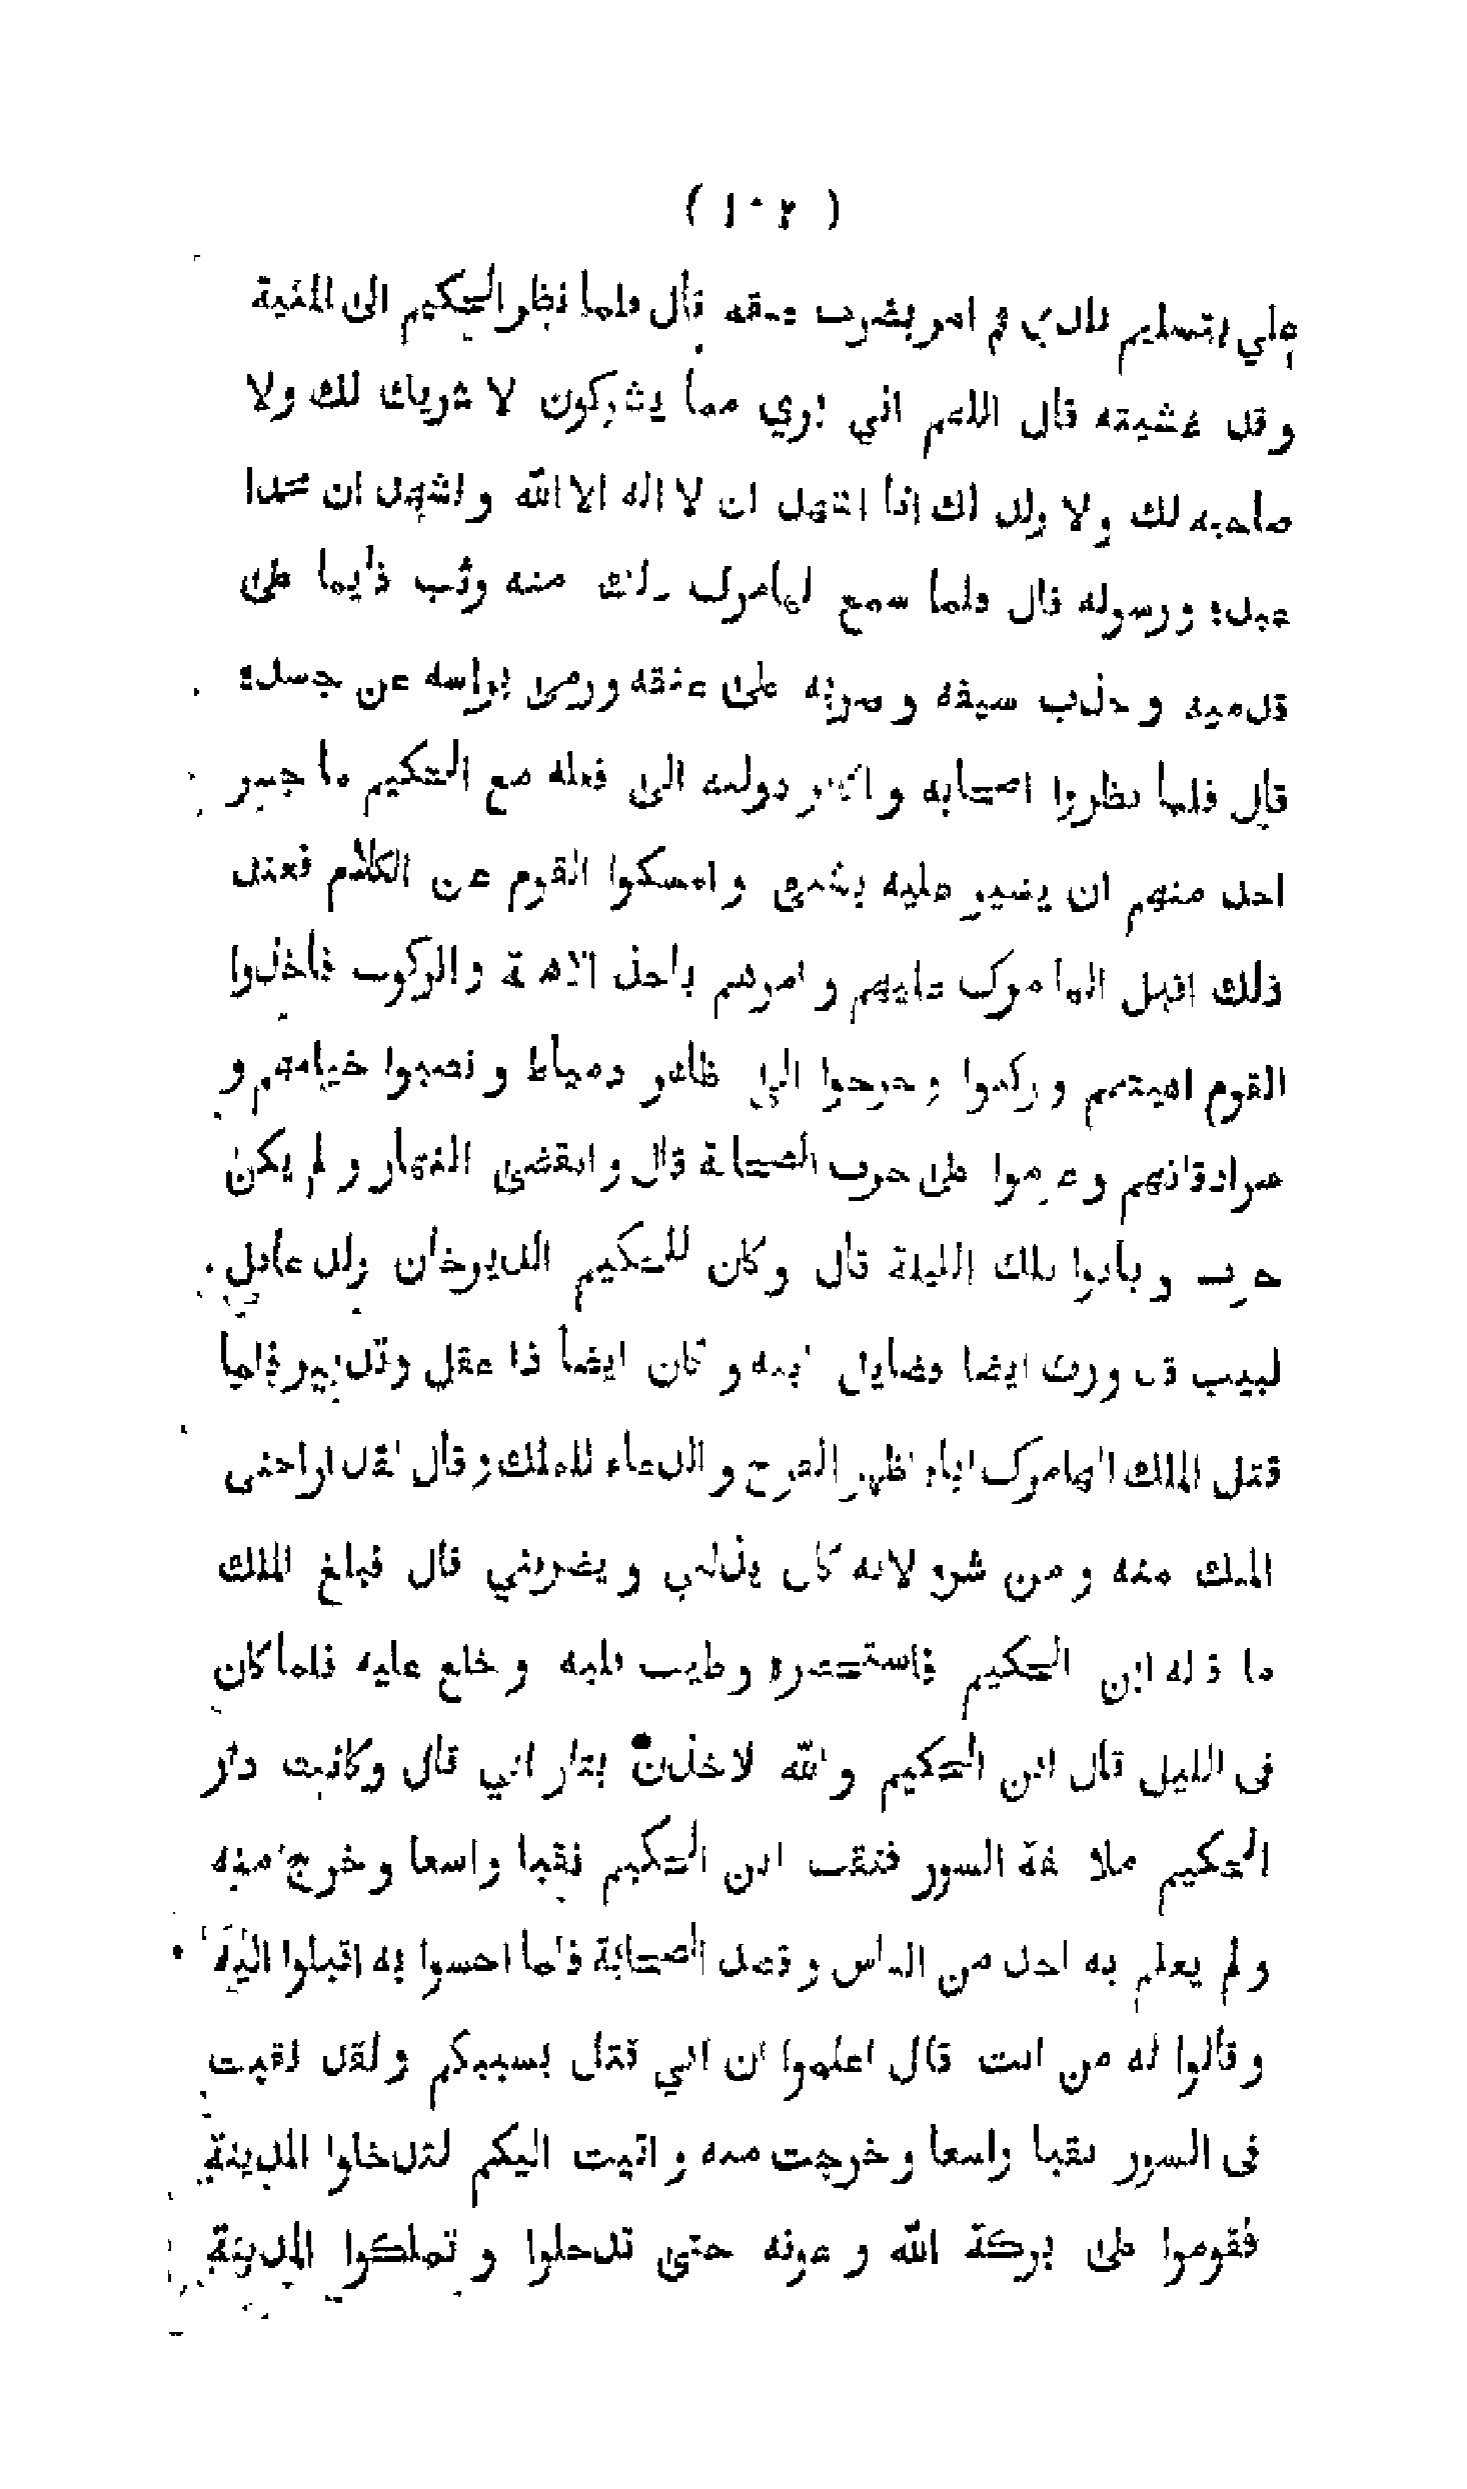 ( ١٠٢ )
علي بتسليم للدي ثم امر بضرب عنقه قال فلما نظر الحكيم الى المنية
وقد غشيته قال اللهم اني بري مما يشركون لا شريك لك ولا
صاحبه لك ولا ولد لك انا اشهد ان لا اله الا الله واشهد ان محمدا
عبده ورسوله قال فلما سمع الهاموك ذلك منه وثب قايما على
قدميه وجذب سيفه وضربه على عنقه ورمى براسه عن جسده
قال فلما نظروا اصحابه واكابر دولته الى فعله مع الحكيم ما جسر
احد منهم ان يشير عليه بشى وامسكوا القوم عن الكلام فعند
ذلك اقبل الهاموك عليهم وامرهم باخذ الاهبة والركوب فأخذوا
القوم اهبتهم وركبوا وخرجوا الى ظاهر دمياط ونصبوا خيامهم و
صرادقاتهم وعزموا على حرب الصحابة قال وانقضى النهار ولم يكن
حرب وباتوا تلك الليلة قال وكان للحكيم الديرخان ولد عاقل
لبيب قد ورث ايضا فضايل ابيه وكان ايضا ذا عقل وتدبير فلما
قتل الملك الهاموك اباه اظهر الفرح والدعاء للملك وقال لقد اراحنى
الملك منه ومن شره لانه كان يذلني ويضربني قال فبلغ الملك
ما قاله ابن الحكيم فاستحضره وطيب قلبه وخلع عليه فلما كان
فى الليل قال ابن الحكيم والله لاخذن بثار ابي قال وكانت دار
الحكيم ملاصقة السور فنقب ابن الحكيم نقبا واسعا وخرج منه
ولم يعلم به احد من الناس وقصد الصحابة فلما احسوا به اقبلوا اليه
وقالوا له من انت قال اعلموا ان ابي قتل بسببكم ولقد نقبت
فى السور نقبا واسعا وخرجت منه واتيت اليكم لتدخلوا المدينة
فقوموا على بركة الله وعونه حتى تدخلوا وتملكوا المدينة